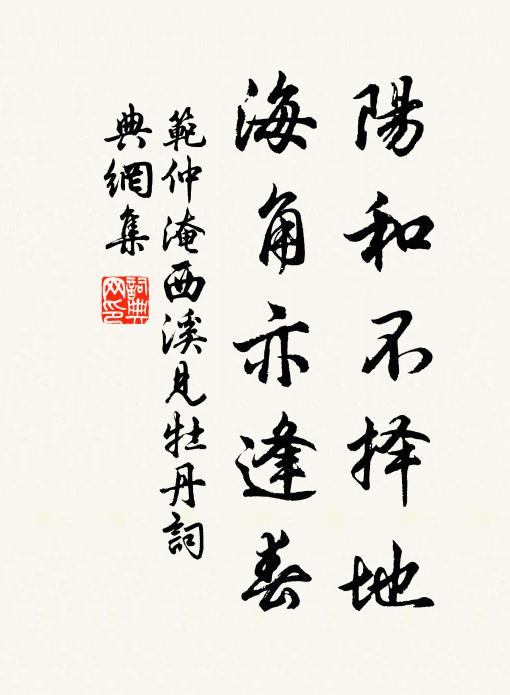 陽和不择地
海角亦逢春
範仲淹西溪見牡丹詞
典網集
詞典
网印